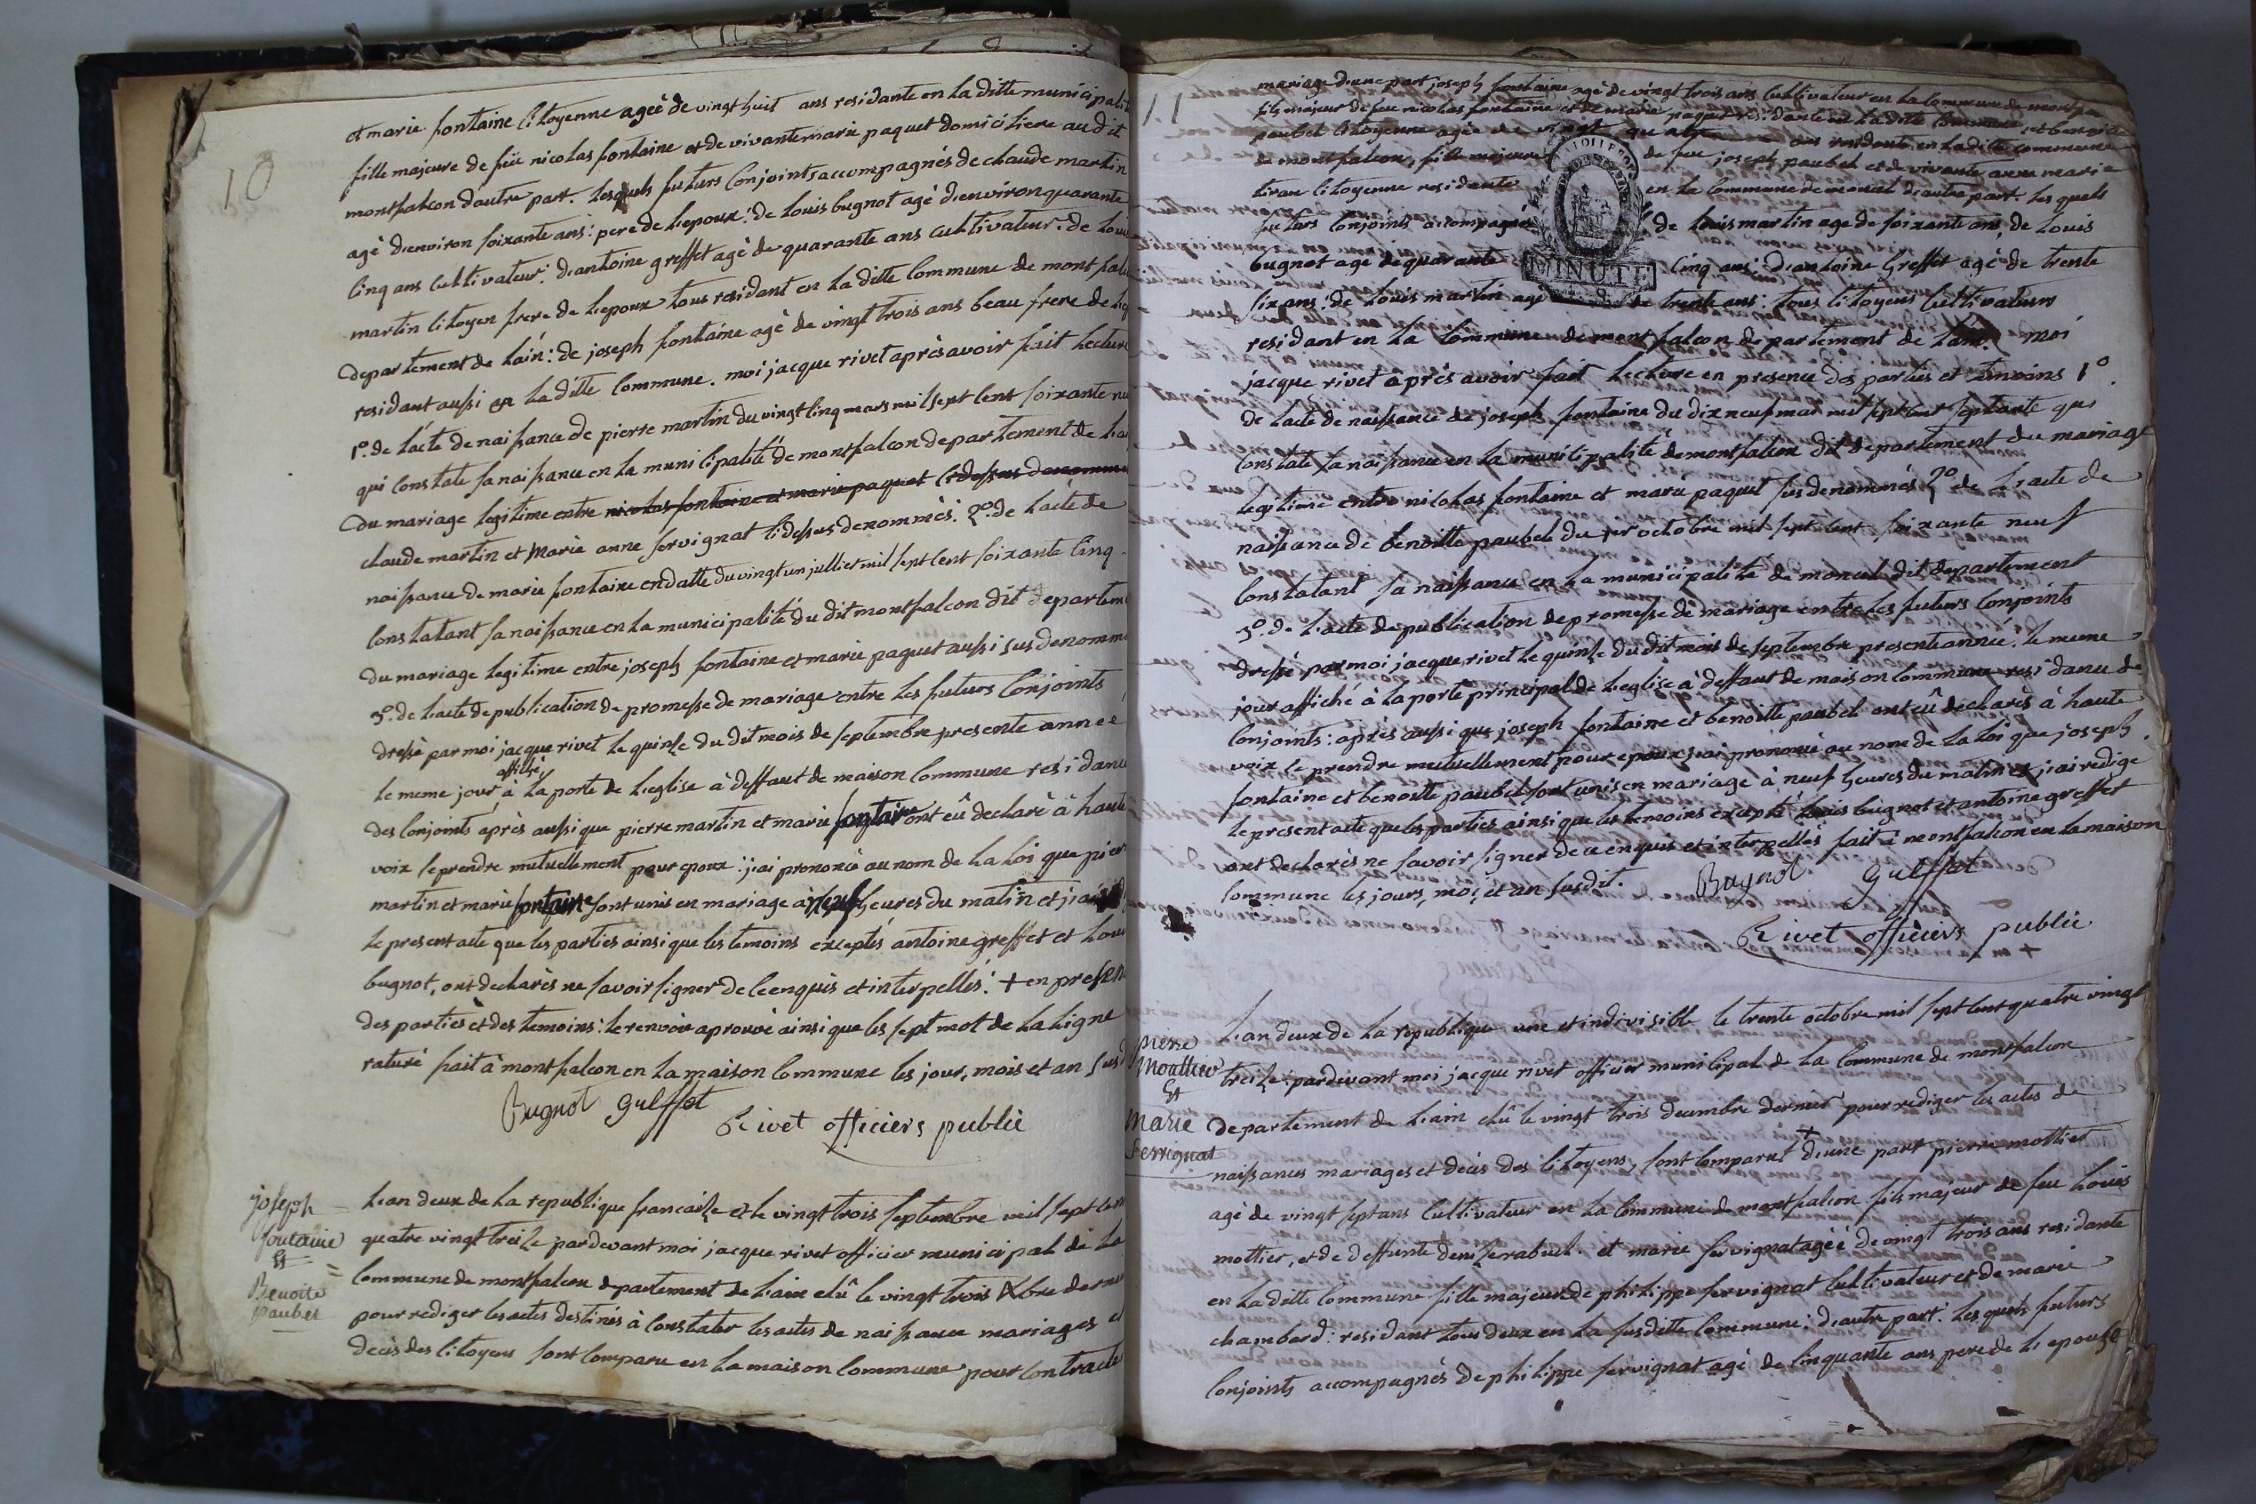 10
et marie fontaine citoyenne ageè de vingt huit ans residante en la ditte municipalit
fille majeure de feü nicolas fontaine et de vivante marie paquet domiciliere au dit
montfalcon dautre part. lesquels futurs Conjoints accompagnés de claude martin
agè d'environ soixante ans: pere de l'epoux: de louis bugnot agè d'environ quarante
Cinq ans Cultivateur: d'antoine greffet agè de quarante ans cultivateur. de loui
martin citoyen frere de l'epoux tous residant en la ditte Commune de montfal
departement de l'ain: de joseph fontaine agè de vingt trois ans beau frere de
residant aussi en la ditte Commune. moi jacque rivet après avoir fait lecture
1º. de l'acte de naissance de pierre martin du vingt Cinq mars mil sept Cent soixante
qui Constate sa naissance en la municipalité de montfalcon departement de l'a
du mariage legitime entre nicolas fontaine et marie paquet Cidessus denomm
claude martin et marie anne servignat Cidessus denommès. 2º. de l'acte de
naissance de marie fontaine en datte du vingt un julliet mil sept Cent soixante Cinq
Constatant sa naissance en la municipalité du dit montfalcon dit departem
du mariage legitime entre joseph fontaine et marie paquet aussi susdenomm
3º. de l'acte de publication de promesse de mariage entre les futurs Conjoints
dressè par moi jacque rivet le quinze du dit mois de septembre presente anneé
affiché
le meme jour à la porte de l'eglise à deffaut de maison Commune residanc
des Conjoints après aussi que pierre martin et marie fontaine ont eû declarè à haute
voix se prendre mutuellement pour epoux: j'ai prononcè au nom de la loi que pier
martin et marie fontaine sont unis en mariage à neuf heures du matin et j'ai
le present acte que les parties ainsi que les temoins exceptés antoine greffet et loui
bugnot, ont declarès ne savoir signer de Ce enquis et interpellés: + en presen
des parties et des temoins: le renvoi aprouvè ainsi que les sept mot de la ligne
raturè fait à montfalcon en la maison Commune les jour, mois et an sus
Bugnot greffet
Rivet officiers public
joseph
fontaine
et
Benoite
paubel
L'an deux de la republique francaise et le vingt trois septembre mil sept Cen
quatre vingt treize pardevant moi jacque rivet officier municipal de la
Commune de montfalcon departement de l'ain elû le vingt trois Xbre dernier
pour rediger les actes destinés à Constater les actes de naissance mariages et
decès des Citoyens sont Comparu en la maison Commune pour Contracte
11
mariage d'une part joseph fontaine agè de vingt trois ans Cultivateur en la Commune de montfa
fils majeur de feu nicolas fontaine et de marie paquet residante en la ditte Commune et benoite
paubel Citoyenne agèe de vingt quatre ans residante en la ditte Commune
de montfalcon, fille majeure de feu joseph paubel et de vivante anne marie
Citoyenne residante en la Commune de moncel d'autre part. les quels
futurs Conjoints accompagnés de louis martin age de soixante ans de louis
bugnot age de quarante Cinq ans: d'antoine Greffet agè de trente
six ans: de louis martin age de trente ans: tous Citoyens Cultivateurs
MINUTE
residant en la Commune de montfalcon departement de l'ain. moi
jacque rivet après avoir fait lecture en presence des parties et temoins 1º.
de l'acte de naissance de joseph fontaine du dix neuf mar mil sept Cent septante qui
Constate sa naissance en la municipalité de montfalcon dit departement du mariage
legitime entre nicolas fontaine et marie paquet susdenommés 2º. de l'acte de
naissance de benoitte paubel du 1er octobre mil sept Cent soixante neuf
Constatant sa naissance en la municipalité de moncel dit departement
3º. de l'acte de publication de promesse de mariage entre les futurs Conjoints
dressè par moi jacque rivet le quinze du dit mois de septembre presente année. le meme
jour affiché à la porte principal de l'eglise à deffaut de maison Commune residance de
Conjoints: après aussi que joseph fontaine et benoitte paubel ont eû declarés à haute
voix se prendre mutuellement pour epoux j'ai prononcè au nom de la loi que joseph
fontaine et benoite paubel sont unis en mariage à neuf heures du matin et j'ai rédige
le present acte que les parties ainsi que les temoins excepté louis bugnot et antoine greffet
ont declarès ne savoir signer de ce enquis et interpellés fait à montfalcon en la maison
Commune les jours, moi, et an susdit. Bugnot greffet
Rivet officiers public
pierre
Mottier
et
Marie
Servignat
L'an deux de la republique une et indivisible le trente octobre mil sept Cent quatre vingt
treize: pardevant moi jacque rivet officier municipal de la Commune de montfalcon
departement de l'ain elû le vingt trois decembre dernier pour rediger les actes de
naissances mariages et decès des Citoyens, sont Comparut + d'une part pierre mottier
agè de vingt sept ans Cultivateur en la Commune de montfalcon fils majeur de feu louis
mottier, et de deffunte denise rabuel. et marie servignat agee de vingt trois ans residante
en la ditte Commune fille majeure de philippe servignat Cultivateur et de marie
chambard: residant tous deux en la susditte Commune: d'autre part. les quels futurs
Conjoints accompagnés de philippe servignat agè de Cinquante ans pere de l'epouse